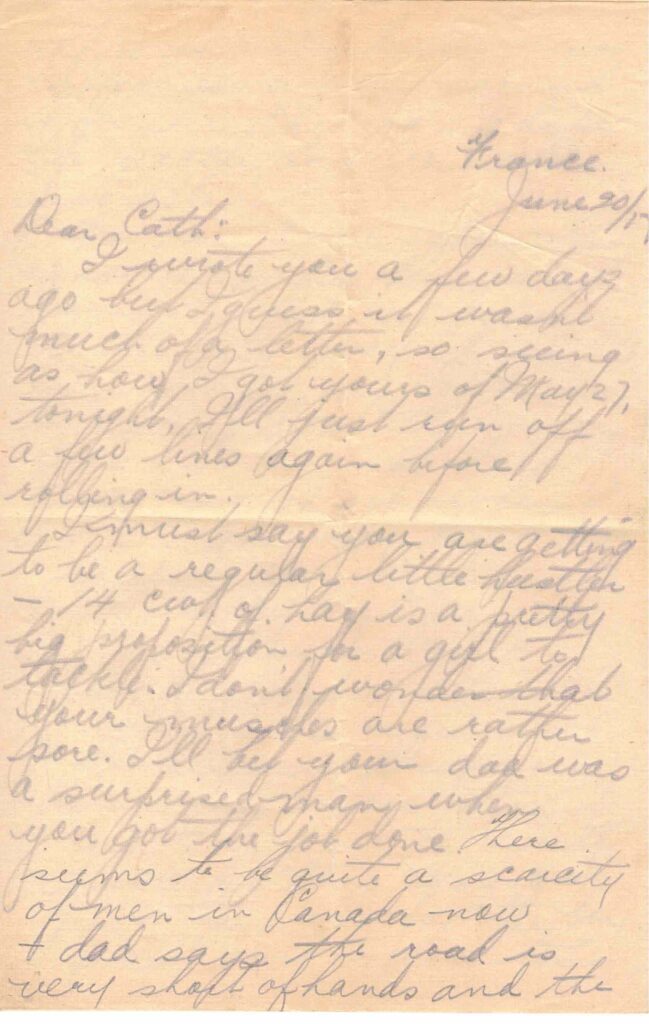 France.
June 20/17
Dear Cath:
I wrote you a few days
ago but I guess it wasn't
much of a letter, so seeing
as how I got yours of May 27,
tonight, I'll just run off
a few lines again before
rolling in.
I must say you are getting
to be a regular little hustler
- 14 cwt. of hay is a pretty
big proposition for a girl to
tackle. I don't wonder that
your muscles are rather
sore. I'll bet your dad was
a surprised man when
you got the job done. There
seems to be quite a scarcity
of men in Canada now
+ dad says the road is
very short of hands and the